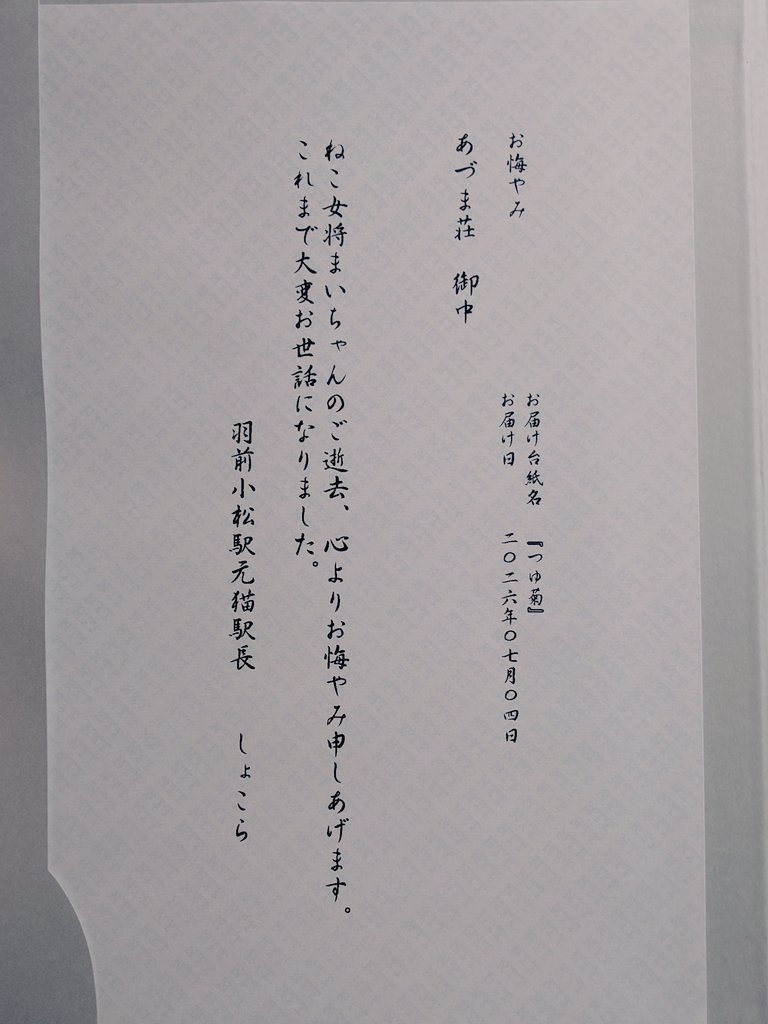 お届け台紙名　『つゆ菊』
お届け日　二〇二六年〇七月〇四日
お悔やみ
あづま荘　御中
ねこ女将まいちゃんのご逝去、心よりお悔やみ申しあげます。
これまで大変お世話になりました。
羽前小松駅元猫駅長　しょこら